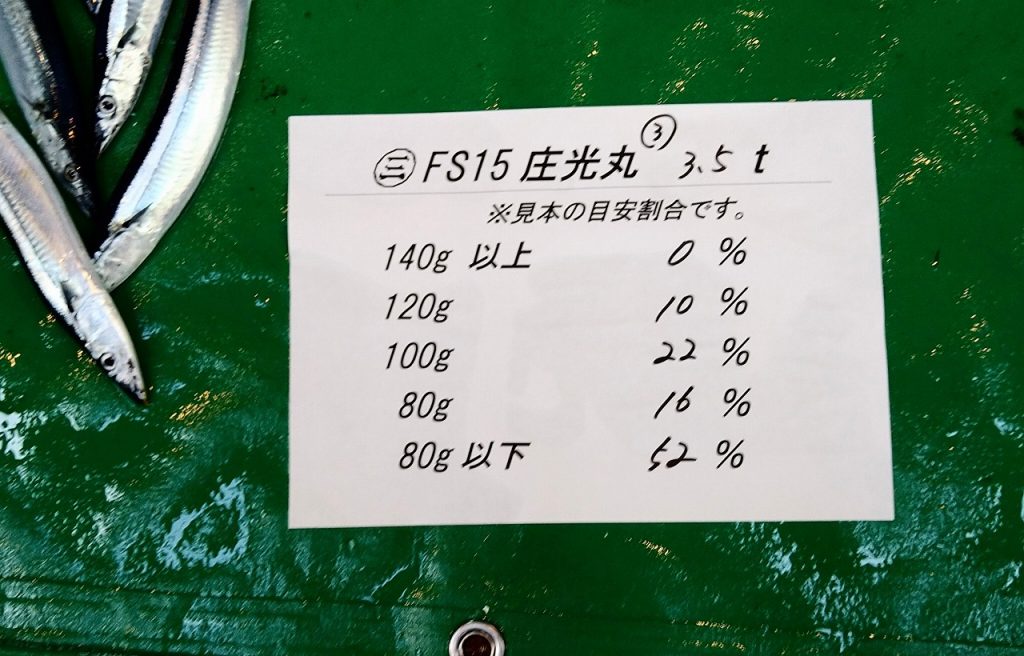 ㊂ FS15 庄光丸 ③ 3.5 t
※見本の目安割合です。
140g 以上 0 %
120g 10 %
100g 22 %
80g 16 %
80g 以下 52 %